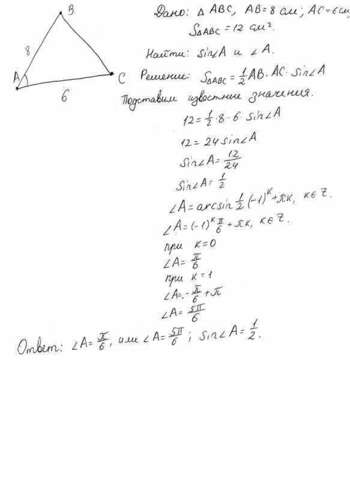 B
8
A
C
6
Дано: △ ABC, AB=8 см; AC=6 см
S△ABC = 12 см².
Найти: sin∠A и ∠A.
Решение: S△ABC = 1/2 AB·AC·sin∠A
Подставим известные значения.
12 = 1/2·8·6·sin∠A
12 = 24 sin∠A
sin∠A = 12/24
sin∠A = 1/2
∠A = arcsin 1/2 (-1)^k + πk, k∈Z.
∠A = (-1)^k π/6 + πk, k∈Z.
при k=0
∠A = π/6
при k=1
∠A = -π/6 + π
∠A = 5π/6
Ответ: ∠A = π/6, или ∠A = 5π/6; sin∠A = 1/2.